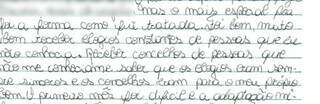 mas o mais especial foi
foi a forma como fui tratada. Foi bom, muito
bom receber elogios constantes de pessoas que eu
não conhecia. Receber concelhos de pessoas que
não me conheciam e saber que os elogios eram sem-
pre sinceros e os concelhos eram para o meu próprio
bem. O primeiro mês foi difícil e a adaptação